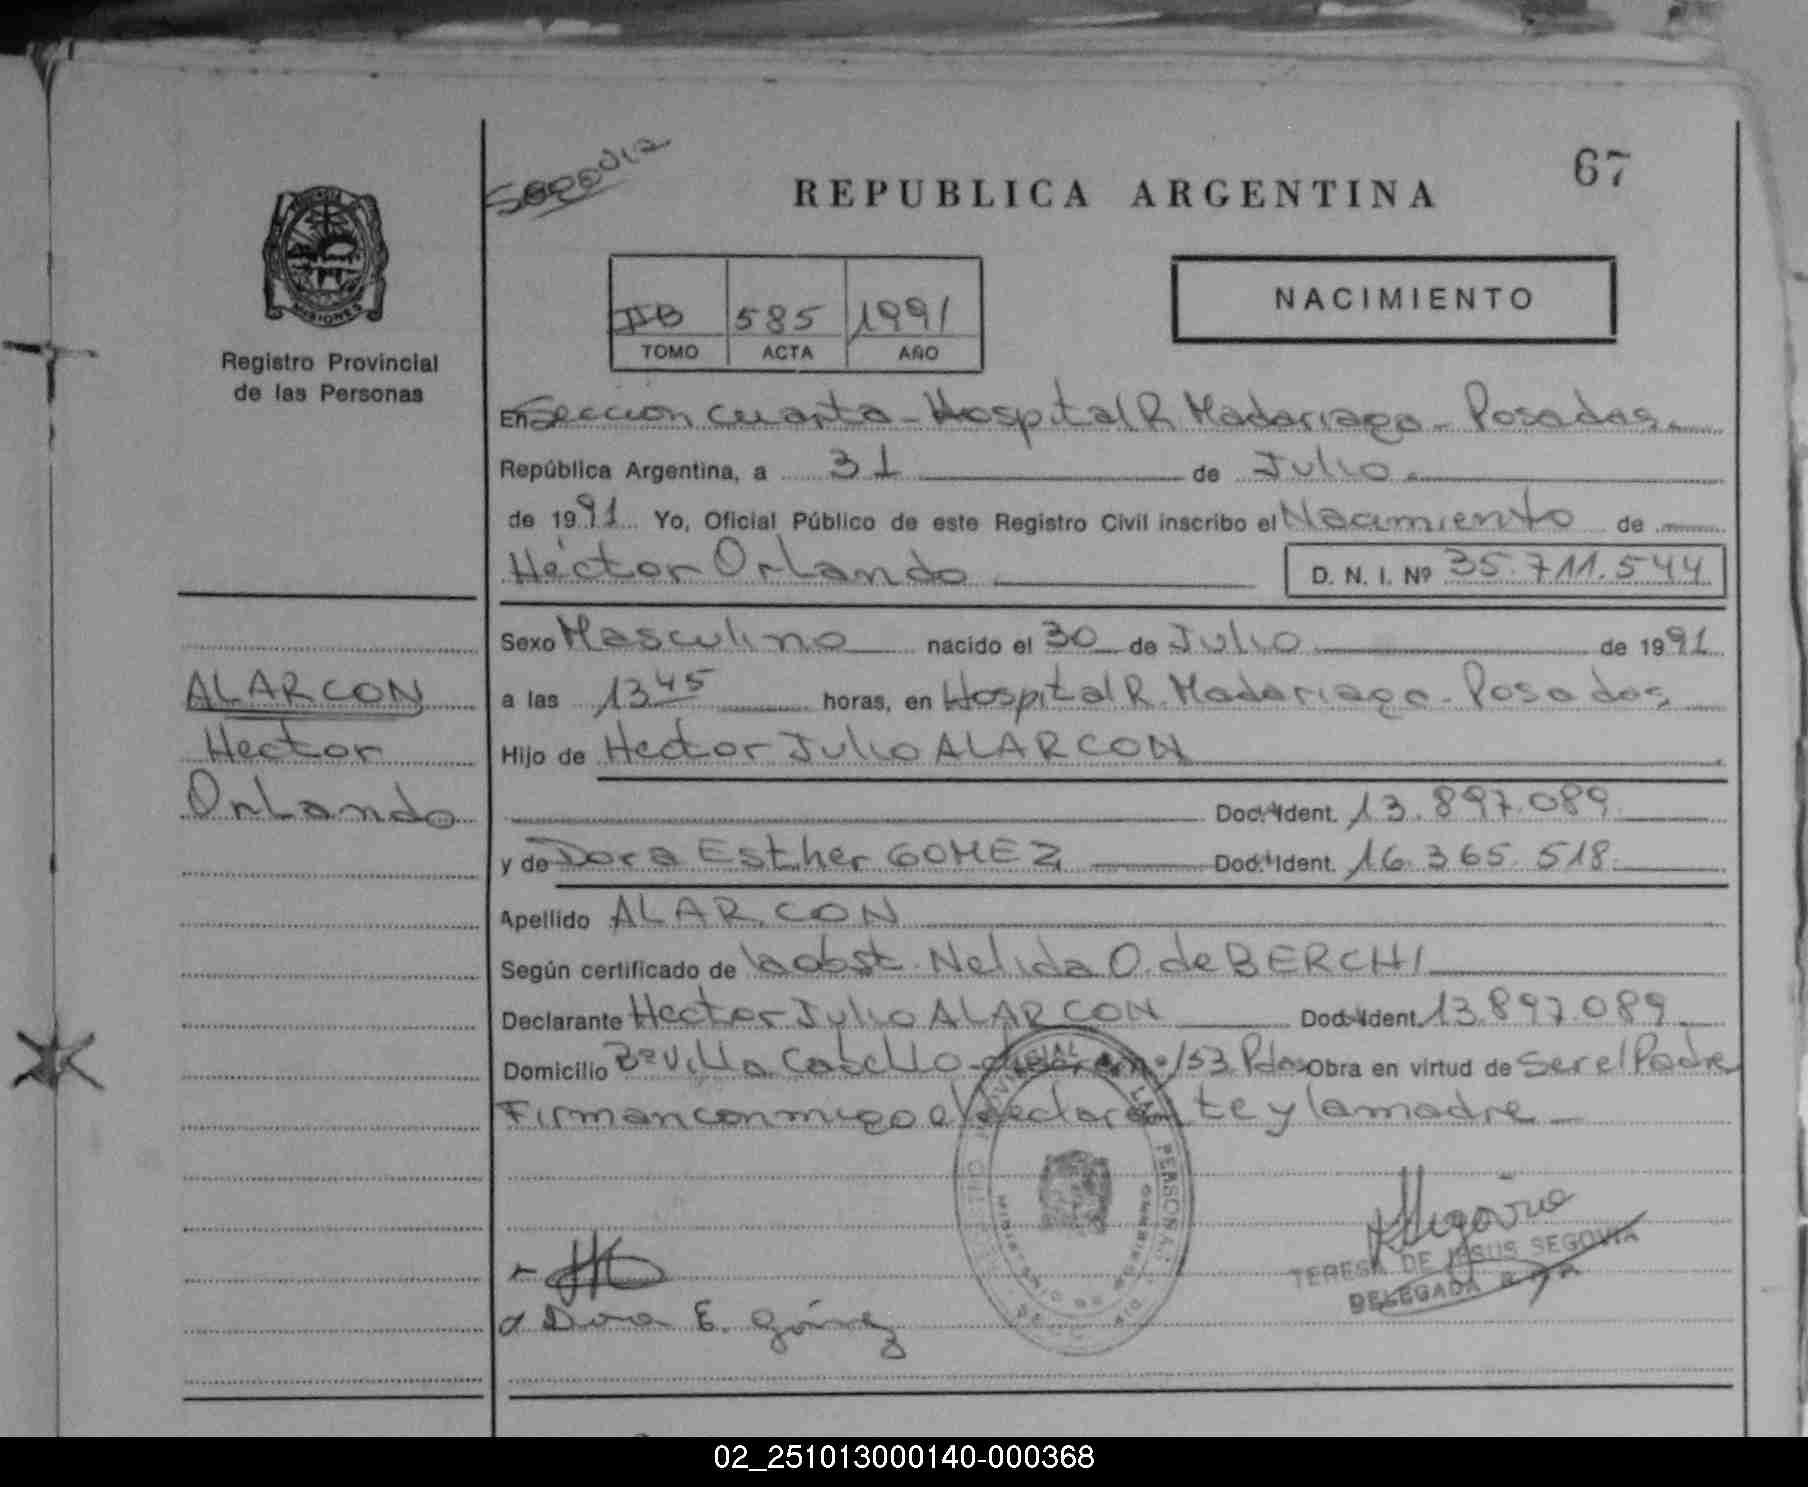 67
Segovia
REPUBLICA ARGENTINA
MISIONES
Registro Provincial
de las Personas
NACIMIENTO
IIB 585 1991
TOMO ACTA AÑO
En Sección cuarta - Hospital R. Madariaga - Posadas.
República Argentina, a 31 de Julio
de 1991 Yo, Oficial Público de este Registro Civil inscribo el Nacimiento de
Héctor Orlando D. N. I. Nº 35.711.544
Sexo Masculino nacido el 30 de Julio de 1991
a las 13 45 horas, en Hospital R. Madariaga - Posadas,
Hijo de Hector Julio ALARCON
Doc. Ident. 13.897.089
y de Dora Esther GOMEZ Doc. Ident. 16.365.518
Apellido ALARCON
Según certificado de la obst. Nelida O. de BERCHI
Declarante Hector Julio ALARCON Doc. Ident. 13.897.089
Domicilio Bº Villa Cabello - nº 153 Pdas Obra en virtud de ser el Padre
Firman conmigo el declarante y la madre
ALARCON
Hector
Orlando
Segovia
TERESA DE JESUS SEGOVIA
DELEGADA
Dora E. Gómez
02_251013000140-000368